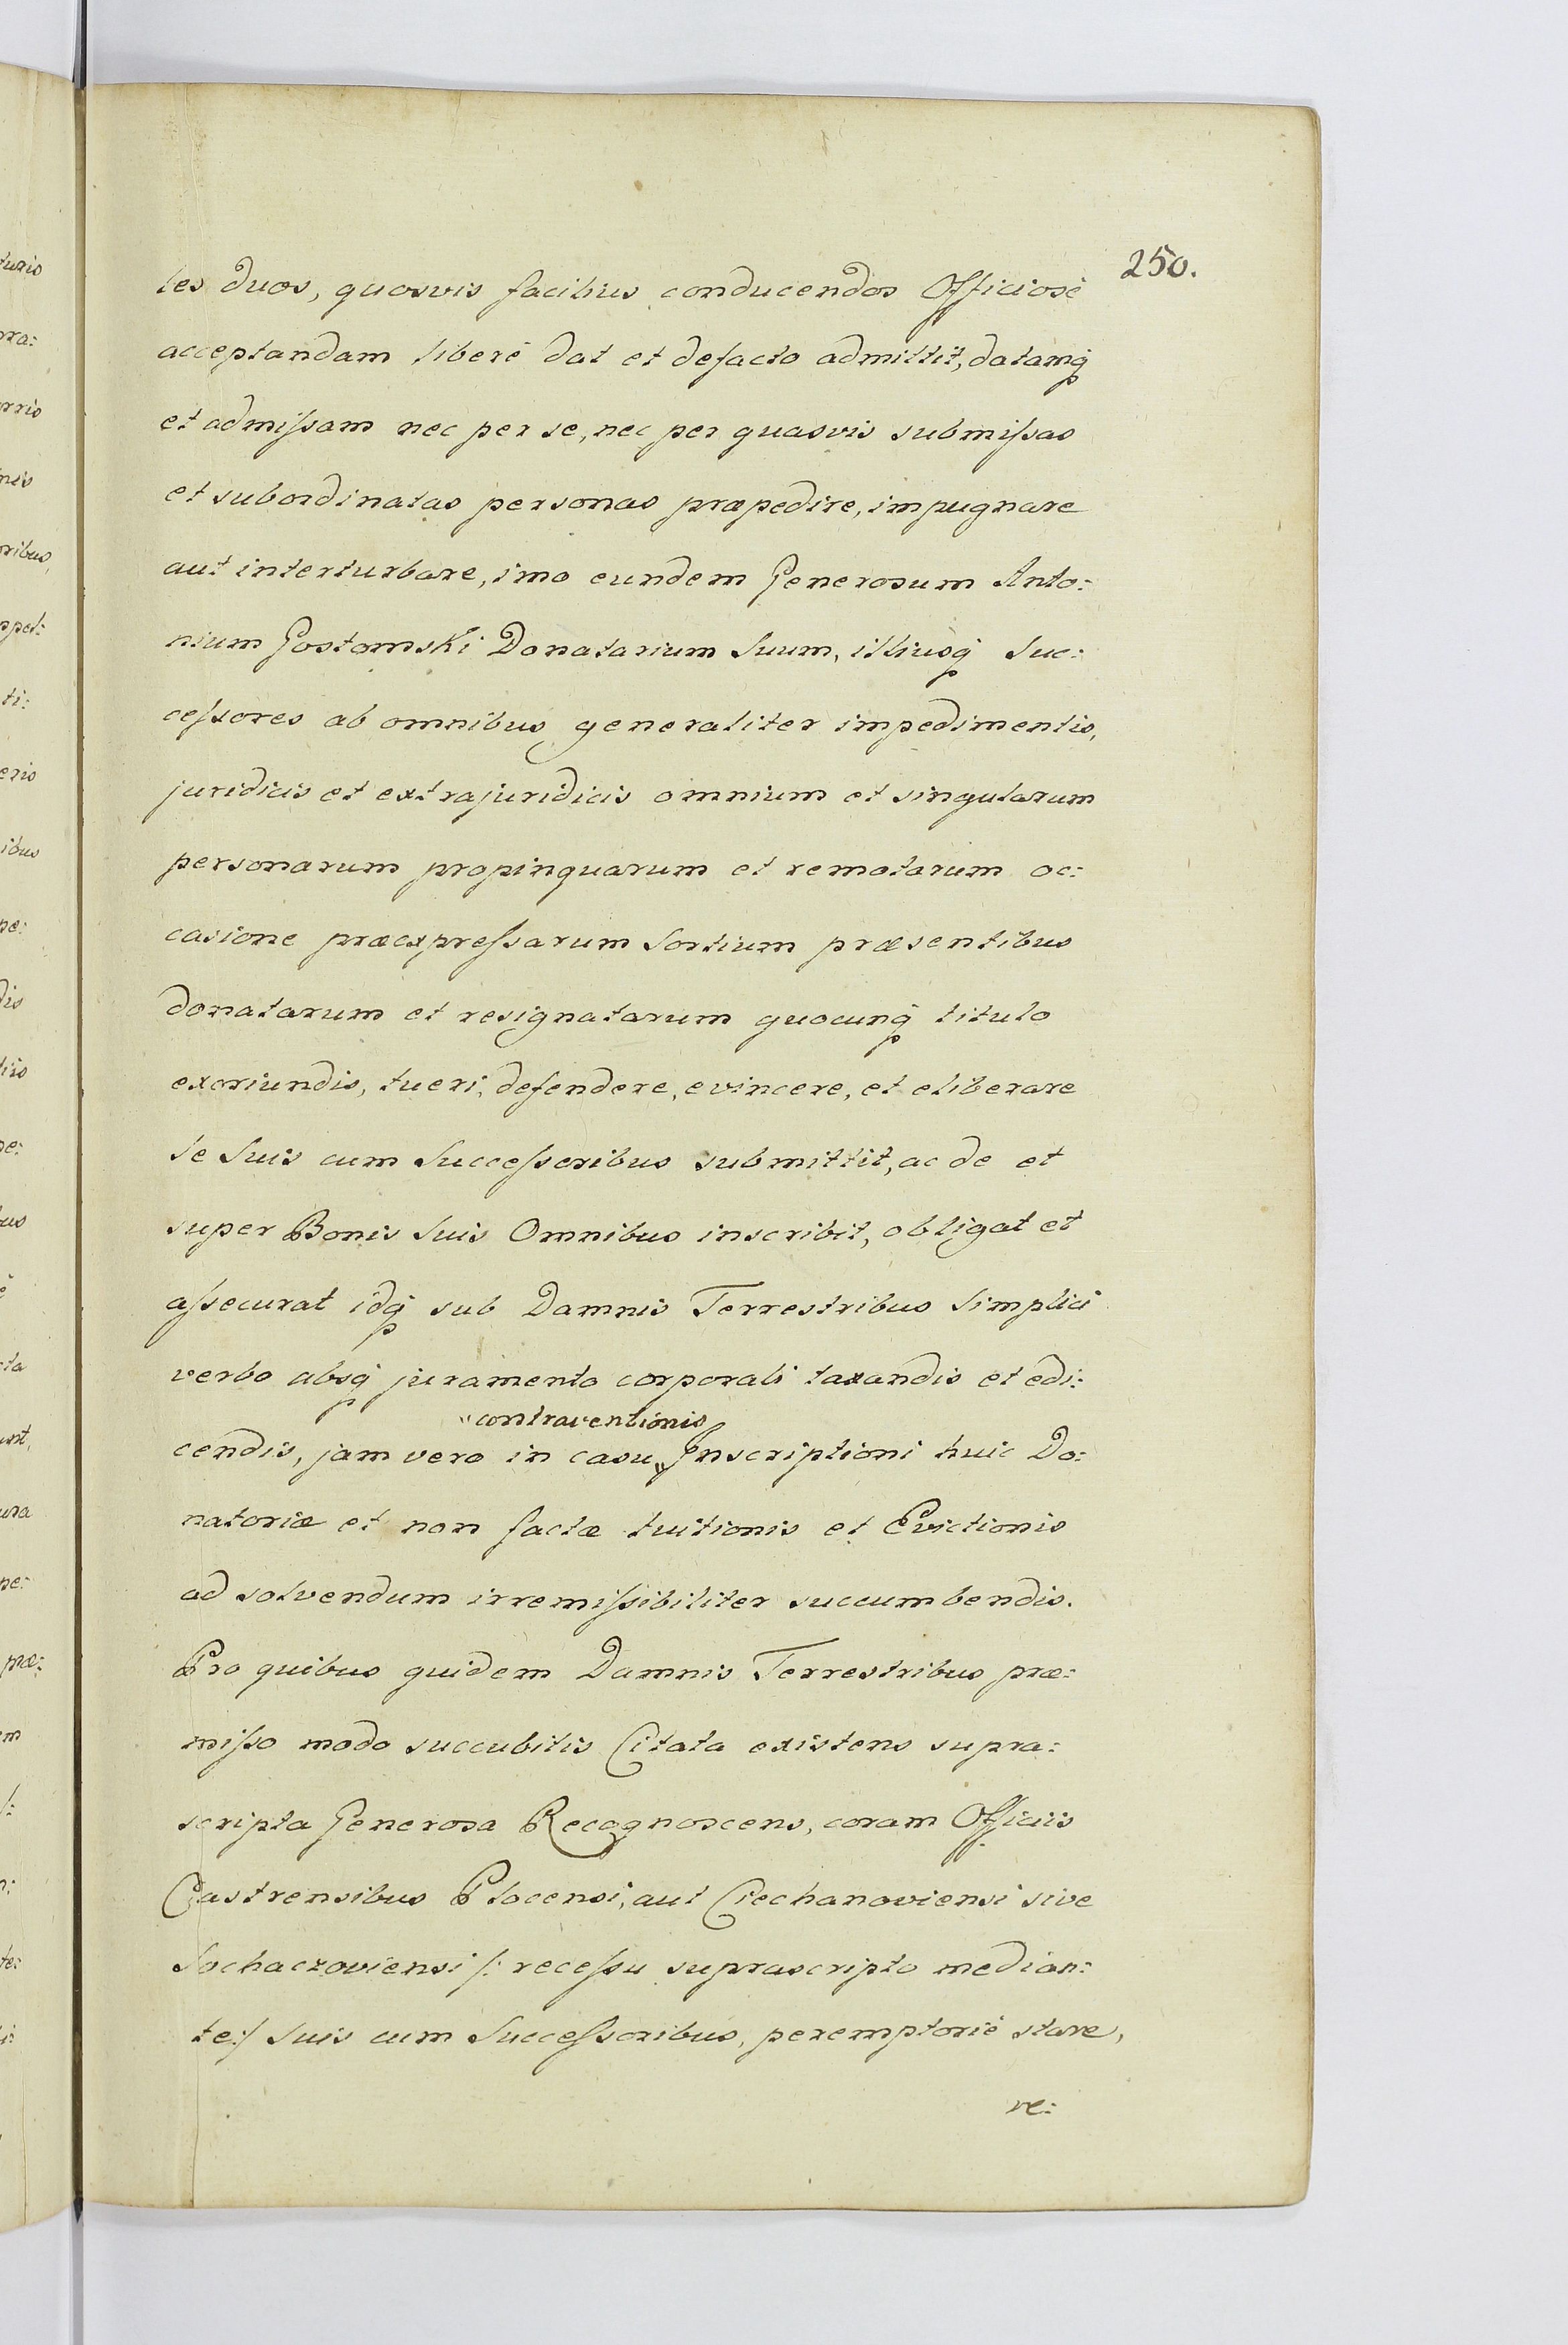 250.
les duos, quosvis facilius conducendos Officiosè
acceptandam liberè dat et defacto admittit, datamq́
et admiſsam nec per se, nec per quasvis submiſsas
et subordinatas personas præpedire, impugnare
aut interturbare, imo eundem Generosum Anto:
nium Gostomski Donatarium Suum, illiusq́ Suc:
ceſsores ab omnibus generaliter impedimentis,
juridicis et extrajuridicis omnium et singularum
personarum propinquarum et remotarum oc:
casione præexpreſsarum Sortium præsentibus
donatarum et resignatarum quocunq́ titulo
exoriundis, tueri, defendere, evincere, et eliberare
Se Suis cum Succeſsoribus submittit, ac de et
super Bonis Suis Omnibus inscribit, obligat et
aſsecurat idq́ sub Damnis Terrestribus Simplici
verbo absq́ juramento corporali taxandis et edi:
"contraventionis
cendis, jam vero in casu " Inscriptioni huic Do:
natoriæ et non factæ tuitionis et Evictionis
ad solvendum irremiſsibiliter succumbendis.
Pro quibus quidem Damnis Terrestribus præ:
miſso modo succubitis Citata existens supra:
scripta Generosa Recognoscens, coram Officiis
Castrensibus Plocensi, aut Ciechanoviensi sive
Sochaczoviensi /: receſsu suprascripto median:
te:/ Suis cum Succeſsoribus, peremptoriè stare,
re:
turio
pra:
orrio
nes
oribus,
ti:
erio
ibus
pe:
dis
pe:
bus
cta
unt,
ura
pe:
præ:
em
/:
n:
te: